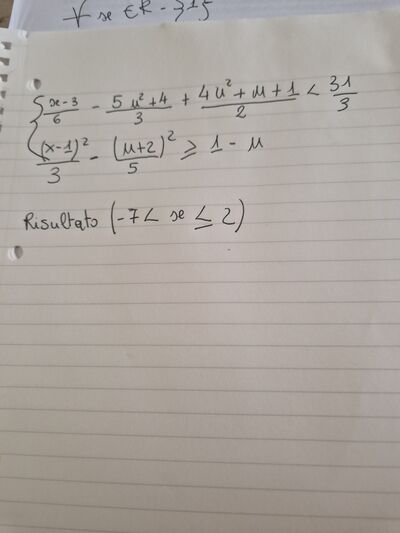 { (x-3)/6 - (5x²+4)/3 + (4x²+x+1)/2 < 31/3
(x-1)²/3 - (x+2)²/5 ≥ 1 - x
Risultato (-7 < x ≤ 2)